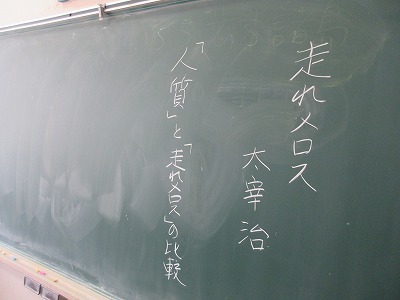 走れメロス
太宰治
「人質」と「走れメロス」の比較